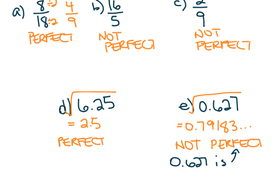 a) 8/18 ÷2/÷2 4/9
PERFECT
b) 16/5
NOT
PERFECT
c) 2/9
NOT
PERFECT
d) √6.25
= 2.5
PERFECT
e) √0.627
= 0.79183...
NOT PERFECT
0.627 is